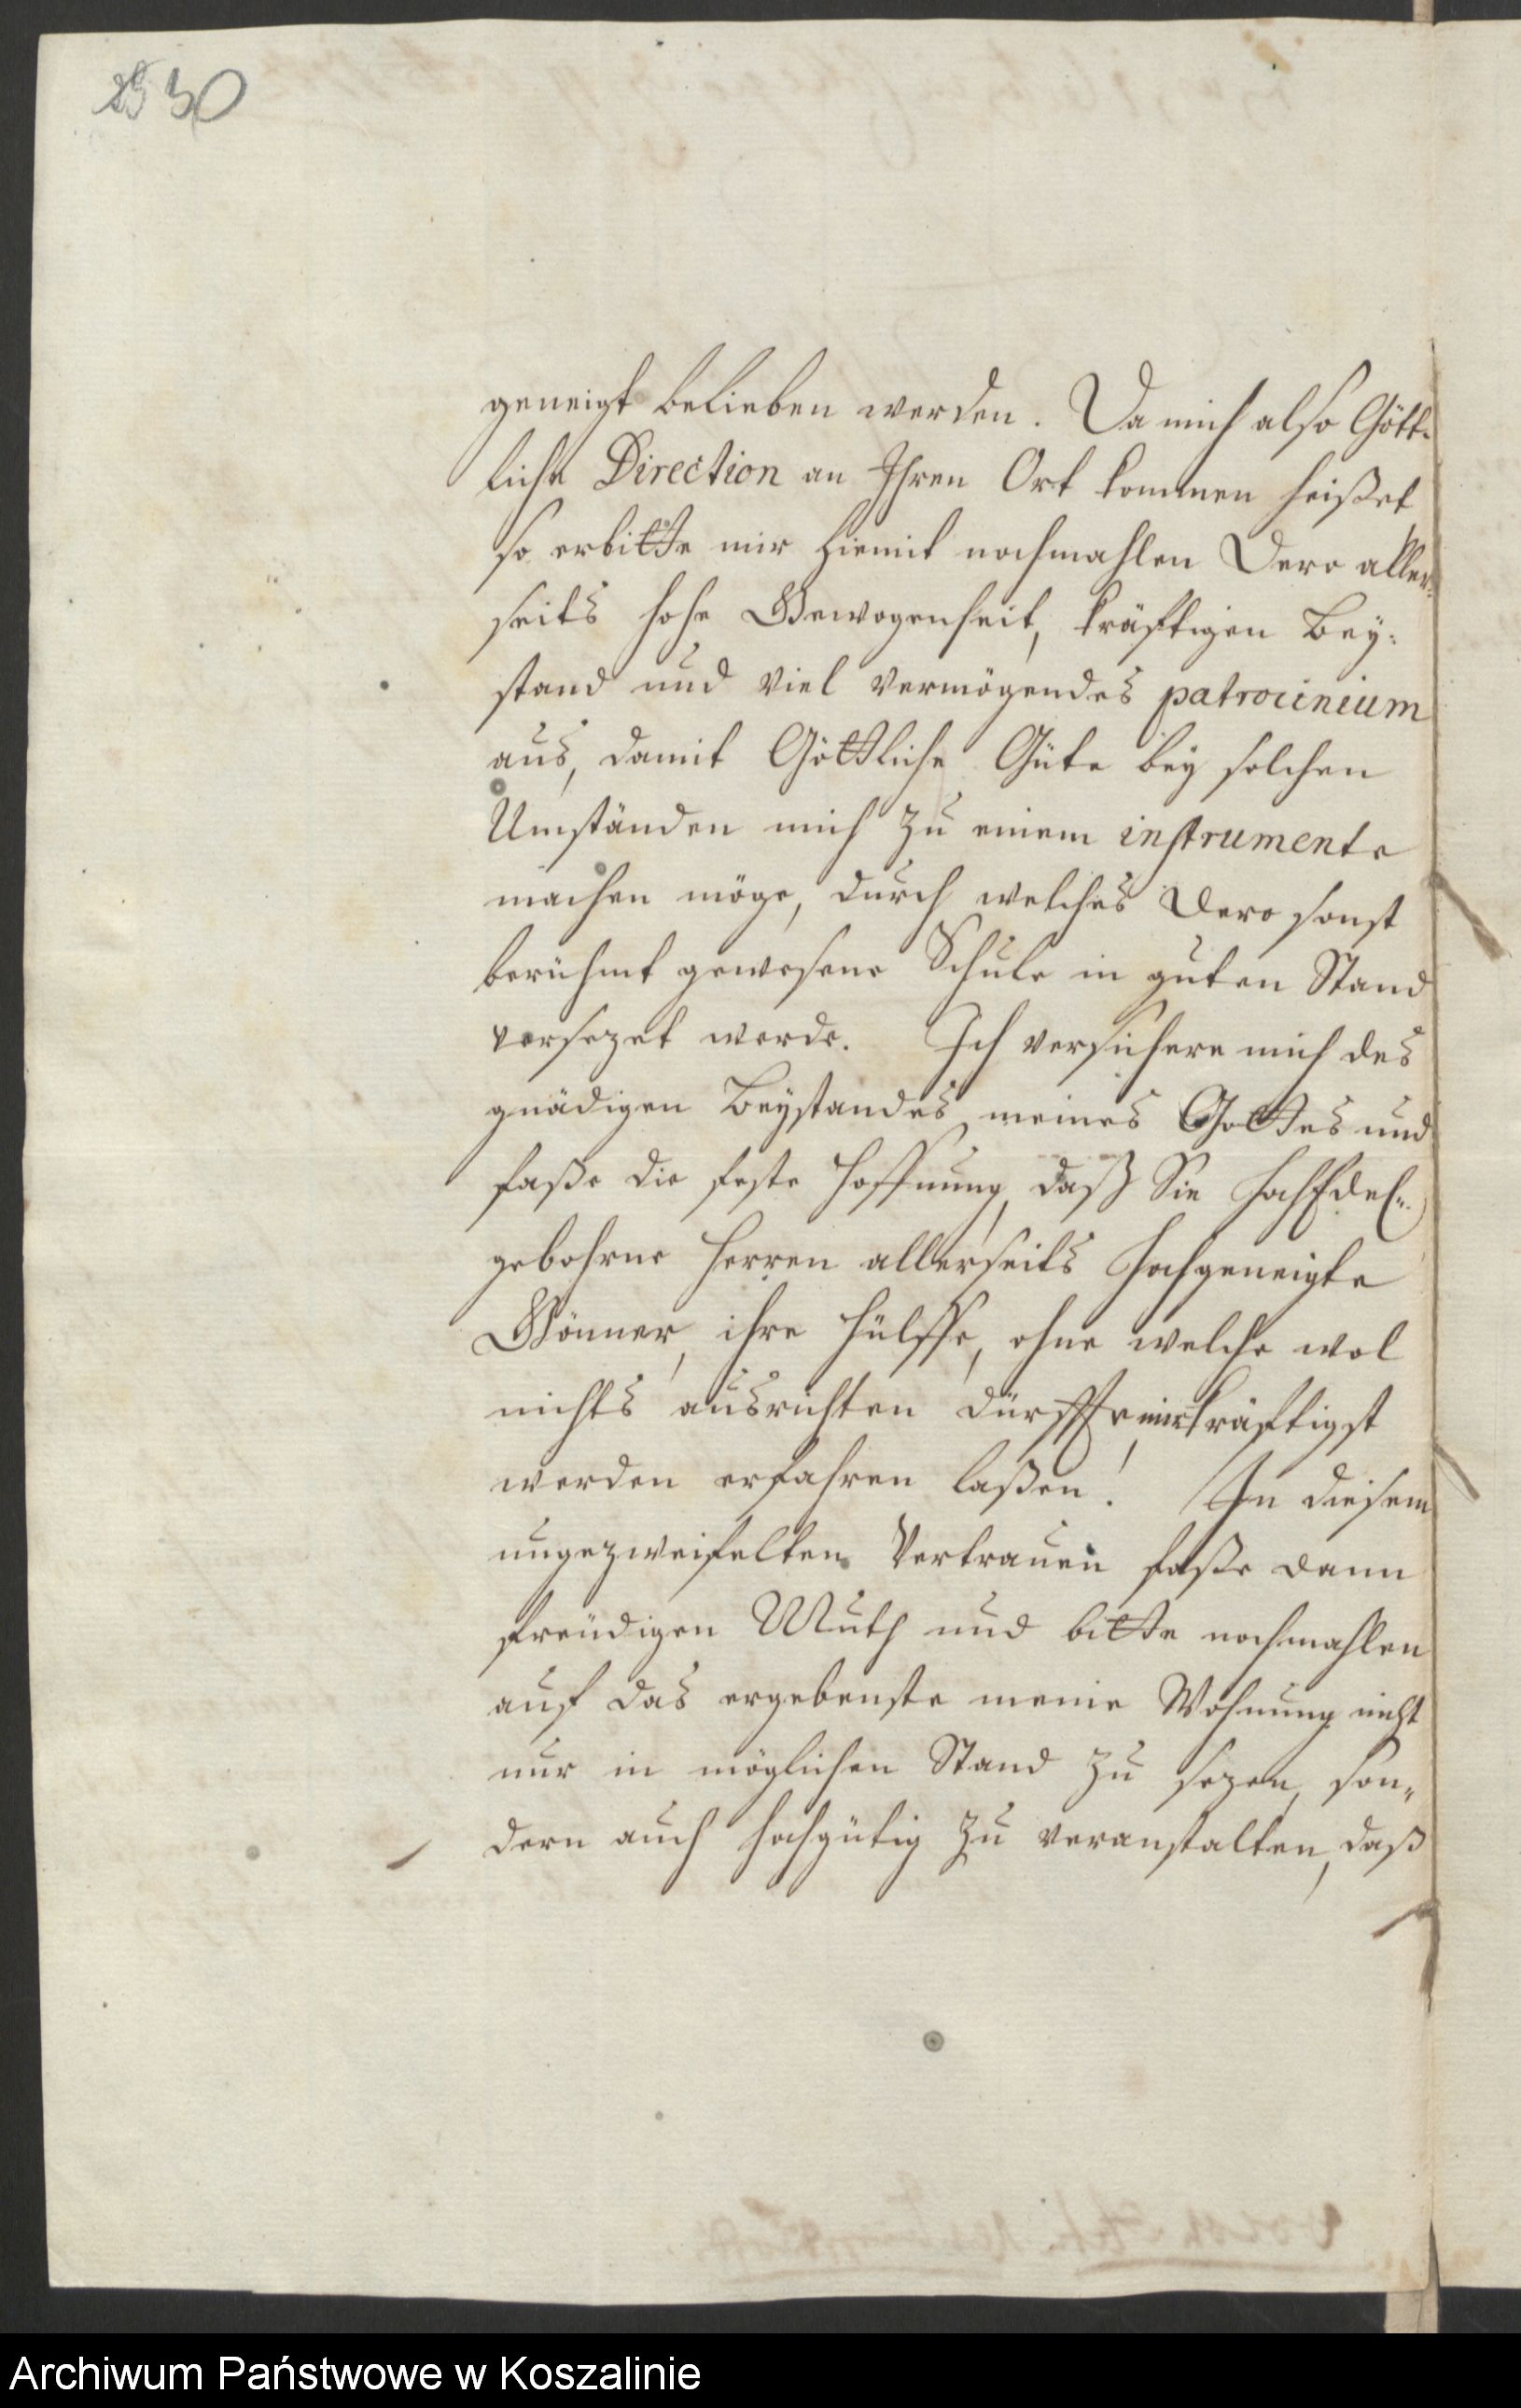 30
geneigt belieben werden. Da mich also Gött-
liche Direction an Ihren Ort kommen heißet
so erbitte mir hiemit nochmahlen Dero aller-
seits hohe Gewogenheit, kräftigen Bey-
stand und viel vermögendes patrocinium
aus, damit Göttliche Güte bey solchen
Umständen mich zu einem instrumente
machen möge, durch welches Dero sonst
berühmt gewesene Schule in guten Stand
versezet werde. Ich versichere mich des
gnädigen Beystandes meines Gottes und
faße die feste Hoffnung, daß Sie HochEdel-
gebohrne Herren allerseits Hochgeneigte
Gönner, ihre Hülffe, ohne welche wol
nichts ausrichten dürffte, mir kräftigst
werden erfahren laßen! In diesem
ungezweifelten Vertrauen faße dann
freudigen Muth und bitte nochmahlen
auf das ergebenste meine Wohnung nicht
nur in möglichen Stand zu sezen, son-
dern auch hochgütig zu veranstalten, daß
Archiwum Państwowe w Koszalinie